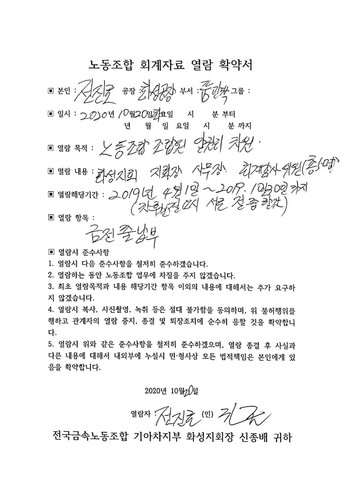 노동조합 회계자료 열람 확약서
▣ 본인 : 전진호 공장 화성공장 부서 : 품 그룹 :
▣ 일시 : 2020년 10월 20일 화요일 시 분 부터
년 월 일 요일 시 분 까지
▣ 열람 목적 : 노동조합 조합원 알권리 차원
▣ 열람 내용 : 화성지회 지회장 사무장 회계감사위원
▣ 열람해당기간 : 2019년 4월 1일 ~ 2019.
▣ 열람 항목 :
금전출납부
▣ 열람시 준수사항
1. 열람시 다음 준수사항을 철저히 준수하겠습니다.
2. 열람하는 동안 노동조합 업무에 차질을 주지 않겠습니다.
3. 최초 열람목적과 내용 해당기간 항목 이외의 내용에 대해서는 추가 요구하
지 않겠습니다.
4. 열람시 복사, 사진촬영, 녹취 등은 절대 불가함을 동의하며, 위 불허행위를
행하고 관계자의 열람 중지, 종결 및 퇴장조치에 순수히 응할 것을 확약합니
다.
5. 열람시 위와 같은 준수사항을 철저히 준수하겠으며, 열람 종결 후 사실과
다른 내용에 대해서 내외부에 누설시 민·형사상 모든 법적책임은 본인에게 있
음을 확약합니다.
2020년 10월 20일
열람자 : 전진호 (인)
전국금속노동조합 기아차지부 화성지회장 신종배 귀하